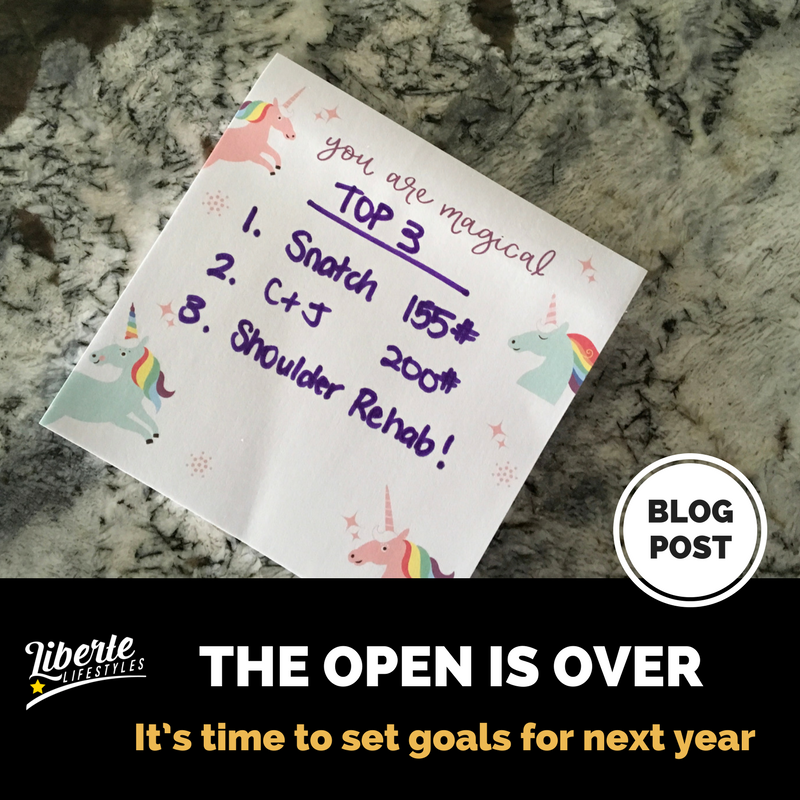 you are magical
TOP 3
1. Snatch 155#
2. C+J 200#
3. Shoulder Rehab!
BLOG
POST
Liberte
LIFESTYLES
THE OPEN IS OVER
It's time to set goals for next year